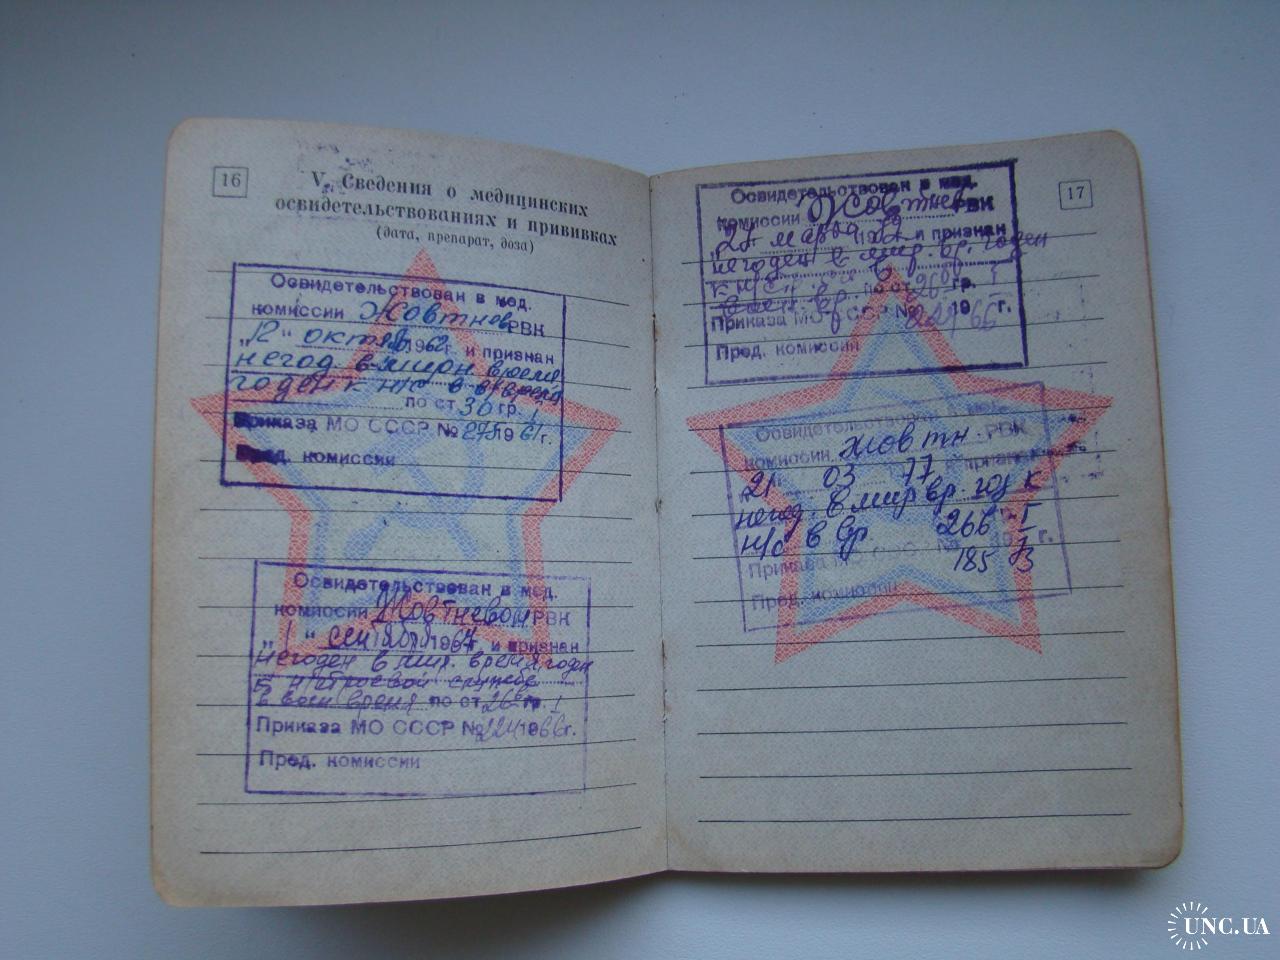 16
V. Сведения о медицинских
освидетельствованиях и прививках
(дата, препарат, доза)
Освидетельствован в мед.
комиссии Жовтнев РВК
„12“ октяб 1962 г. и признан
негод. в мирн время
годен к н/с в
по ст 30 гр. I
Приказа МО СССР № 275 1961 г.
Пред. комиссии
Освидетельствован в мед.
комиссии Жовтневом РВК
„1“ сентября 1967 г. и признан
негоден в мир. время годен
к н/строевой службе
в воен время по ст. 26б гр. I
Приказа МО СССР № 224 1966 г.
Пред. комиссии
17
Освидетельствован в мед.
комиссии Жовтнев РВК
марта 19 и признан
негоден в мир. вр. годен
к н/с в
воен. вр. по ст 26б гр. I
Приказа МО СССР № 224 1966 г.
Пред. комиссии
Освидетельствован в мед.
комиссии Жовтн. РВК
21 03 77 и признан
негод. в мир вр. год к
н/с в вр 266 - I
Приказа МО СССР № 19 г.
185 73
Пред. комиссии
UNC.UA